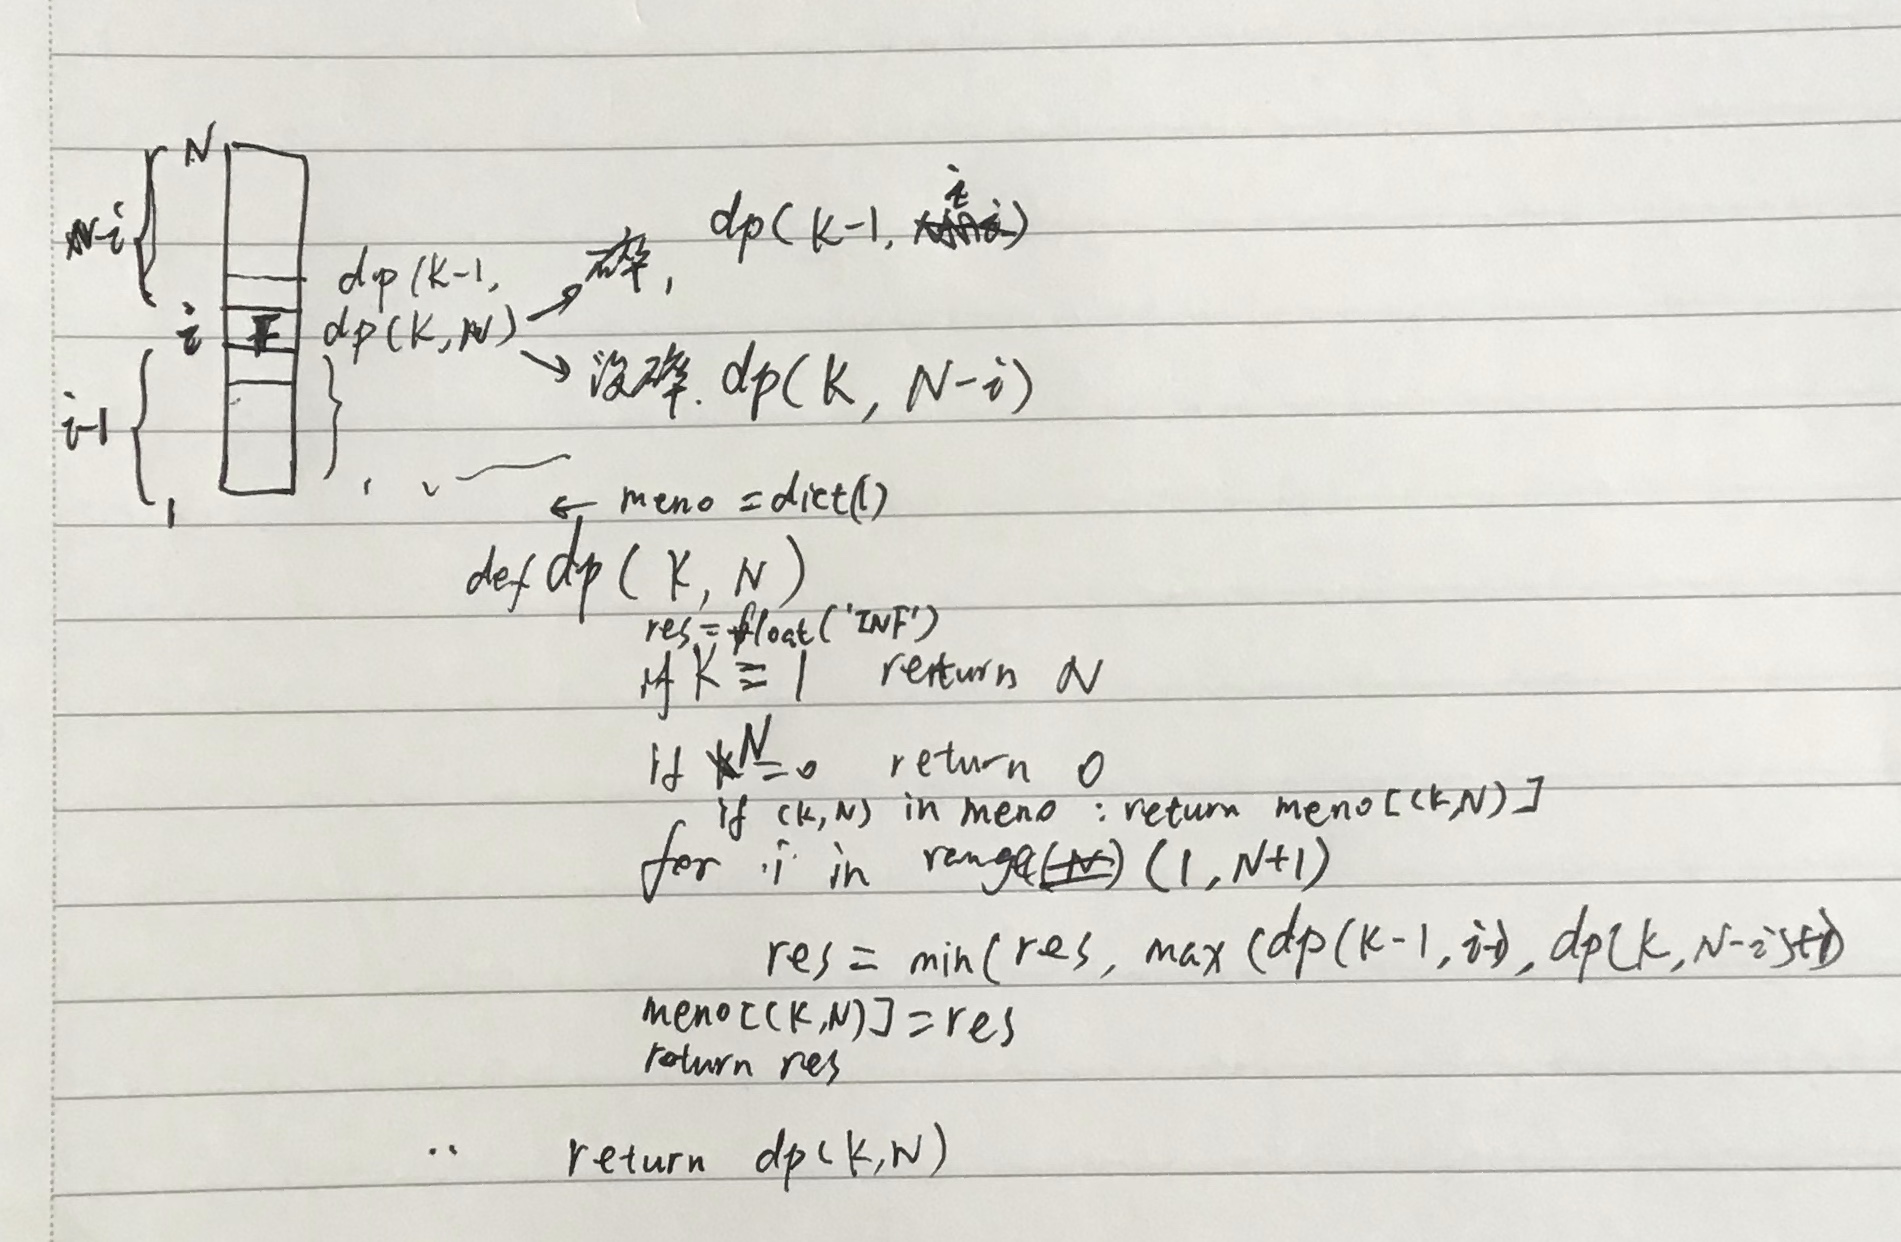 N
N-i
i
i-1
1
F
dp(K-1,
dp(K,N)
碎, dp(K-1, i)
没碎. dp(K, N-i)
← meno = dict()
def dp(K, N)
res = float('INF')
if K == 1 return N
if N=0 return 0
if (K,N) in meno : return meno[(K,N)]
for i in range (1, N+1)
res = min(res, max(dp(K-1, i-1), dp(K, N-i)+1)
meno[(K,N)] = res
return res
return dp(K,N)